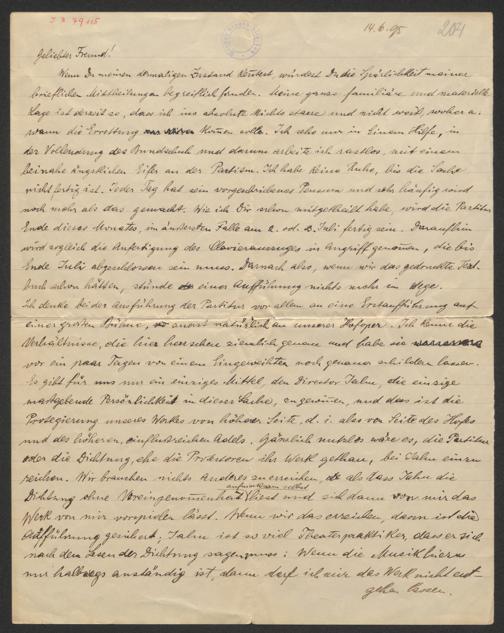 J N 79115
14.6.95
204
Geliebter Freund!
Wenn Du meinen dermaligen Zustand kenntest, würdest Du die Spärlichkeit meiner
brieflichen Mittheilungen begreiflich finden. Meine ganze familiäre und materielle
Lage ist derzeit so, dass ich ins absolute Nichts starre und nicht weiß, woher u.
wann die Errettung kommen solle. Ich sehe nur in Einem Hilfe, in
der Vollendung des Bundschuh und darum arbeite ich rastlos, mit einem
beinahe ängstlichen Eifer an der Partitur. Ich habe keine Ruhe, bis die Sache
nicht fertig ist. Jeder Tag hat sein vorgeschriebenes Pensum und sehr häufig wird
noch mehr als das gemacht. Wie ich Dir schon mitgetheilt habe, wird die Partitur
Ende dieses Monates, im äußersten Falle am 2. od. 3. Juli fertig sein. Daraufhin
wird sogleich die Anfertigung des Clavierauszuges in Angriff genommen, die bis
Ende Juli abgeschlossen sein muss. Darnach also, wenn wir das gedruckte Text-
buch schon hätten, stünde einer Aufführung nichts mehr im Wege.
Ich denke bei der Ausführung der Partitur vor allem an eine Erstaufführung auf
einer großen Bühne, zuerst natürlich an unserer Hofoper. Ich kenne die
Verhältnisse, die hier herrschen ziemlich genau und habe sie
vor ein paar Tagen von einem Eingeweihten noch genauer schildern lassen.
Es gibt für uns nur ein einziges Mittel, den Director Jahn, die einzige
maßgebende Persönlichkeit in dieser Sache, zu gewinnen, und das ist die
Protegierung unseres Werkes von höherer Seite, d. i. also von Seite des Hofes
und des höheren, einflussreichen Adels. Gänzlich nutzlos wäre es, die Partitur
oder die Dichtung, ehe die Protectoren ihr Werk gethan, bei Jahn einzu-
reichen. Wir brauchen nichts Anderes zu erreichen, als dass Jahn die
Dichtung ohne Voreingenommenheit aufmerksam selbst liest und sich dann von mir das
Werk von mir vorspielen lässt. Wenn wir das erreichen, dann ist die
Aufführung gesichert; Jahn ist so viel Theaterpraktiker, dass er sich
nach dem Lesen der Dichtung sagen muss: Wenn die Musik hierzu
nur halbwegs anständig ist, dann darf ich mir das Werk nicht ent-
gehen lassen.